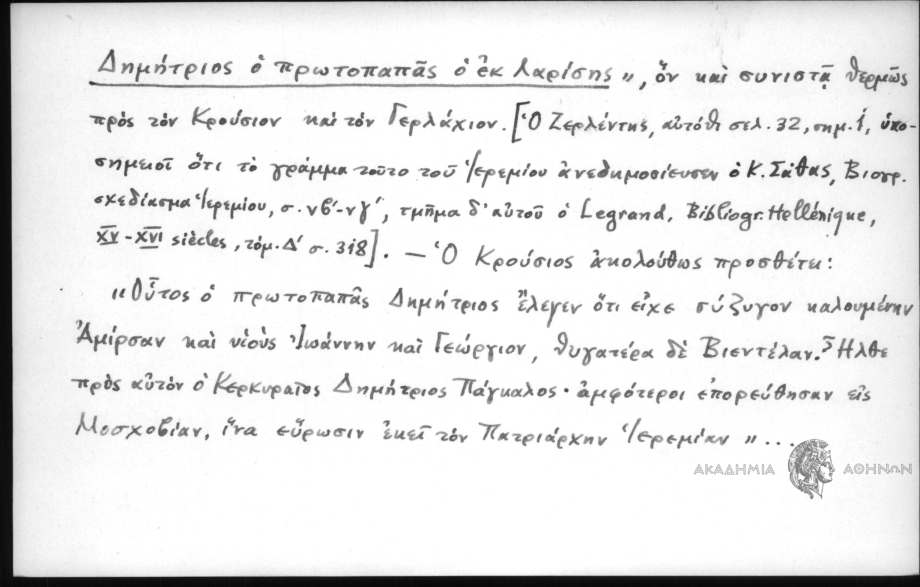 Δημήτριος ὁ πρωτοπαπᾶς ὁ ἐκ Λαρίσης", ὅν καὶ συνιστᾷ θερμῶς
πρὸς τὸν Κρούσιον καὶ τὸν Γερλάχιον. [Ὁ Ζερλέντης, αὐτόθι σελ. 32, σημ. 1, ὑπο-
σημειοῖ ὅτι τὸ γράμμα τοῦτο τοῦ Ἱερεμίου ἀνεδημοσίευσεν ὁ Κ. Σάθας, Βιογρ.
σχεδίασμα Ἱερεμίου, σ. νβ'-νγ', τμῆμα δ' αὐτοῦ ὁ Legrand, Bibliogr. Hellénique,
XV-XVI siècles, τόμ. Δ' σ. 318]. — Ὁ Κρούσιος ἀκολούθως προσθέτει:
"Οὗτος ὁ πρωτοπαπᾶς Δημήτριος ἔλεγεν ὅτι εἶχε σύζυγον καλουμένην
Ἀμίρσαν καὶ υἱοὺς Ἰωάννην καὶ Γεώργιον, θυγατέρα δὲ Βιεντέλαν. Ἦλθε
πρὸς αὐτὸν ὁ Κερκυραῖος Δημήτριος Πάγκαλος· ἀμφότεροι ἐπορεύθησαν εἰς
Μοσχοβίαν, ἵνα εὕρωσιν ἐκεῖ τὸν Πατριάρχην Ἱερεμίαν" ...
ΑΚΑΔΗΜΙΑ ΑΘΗΝΩΝ